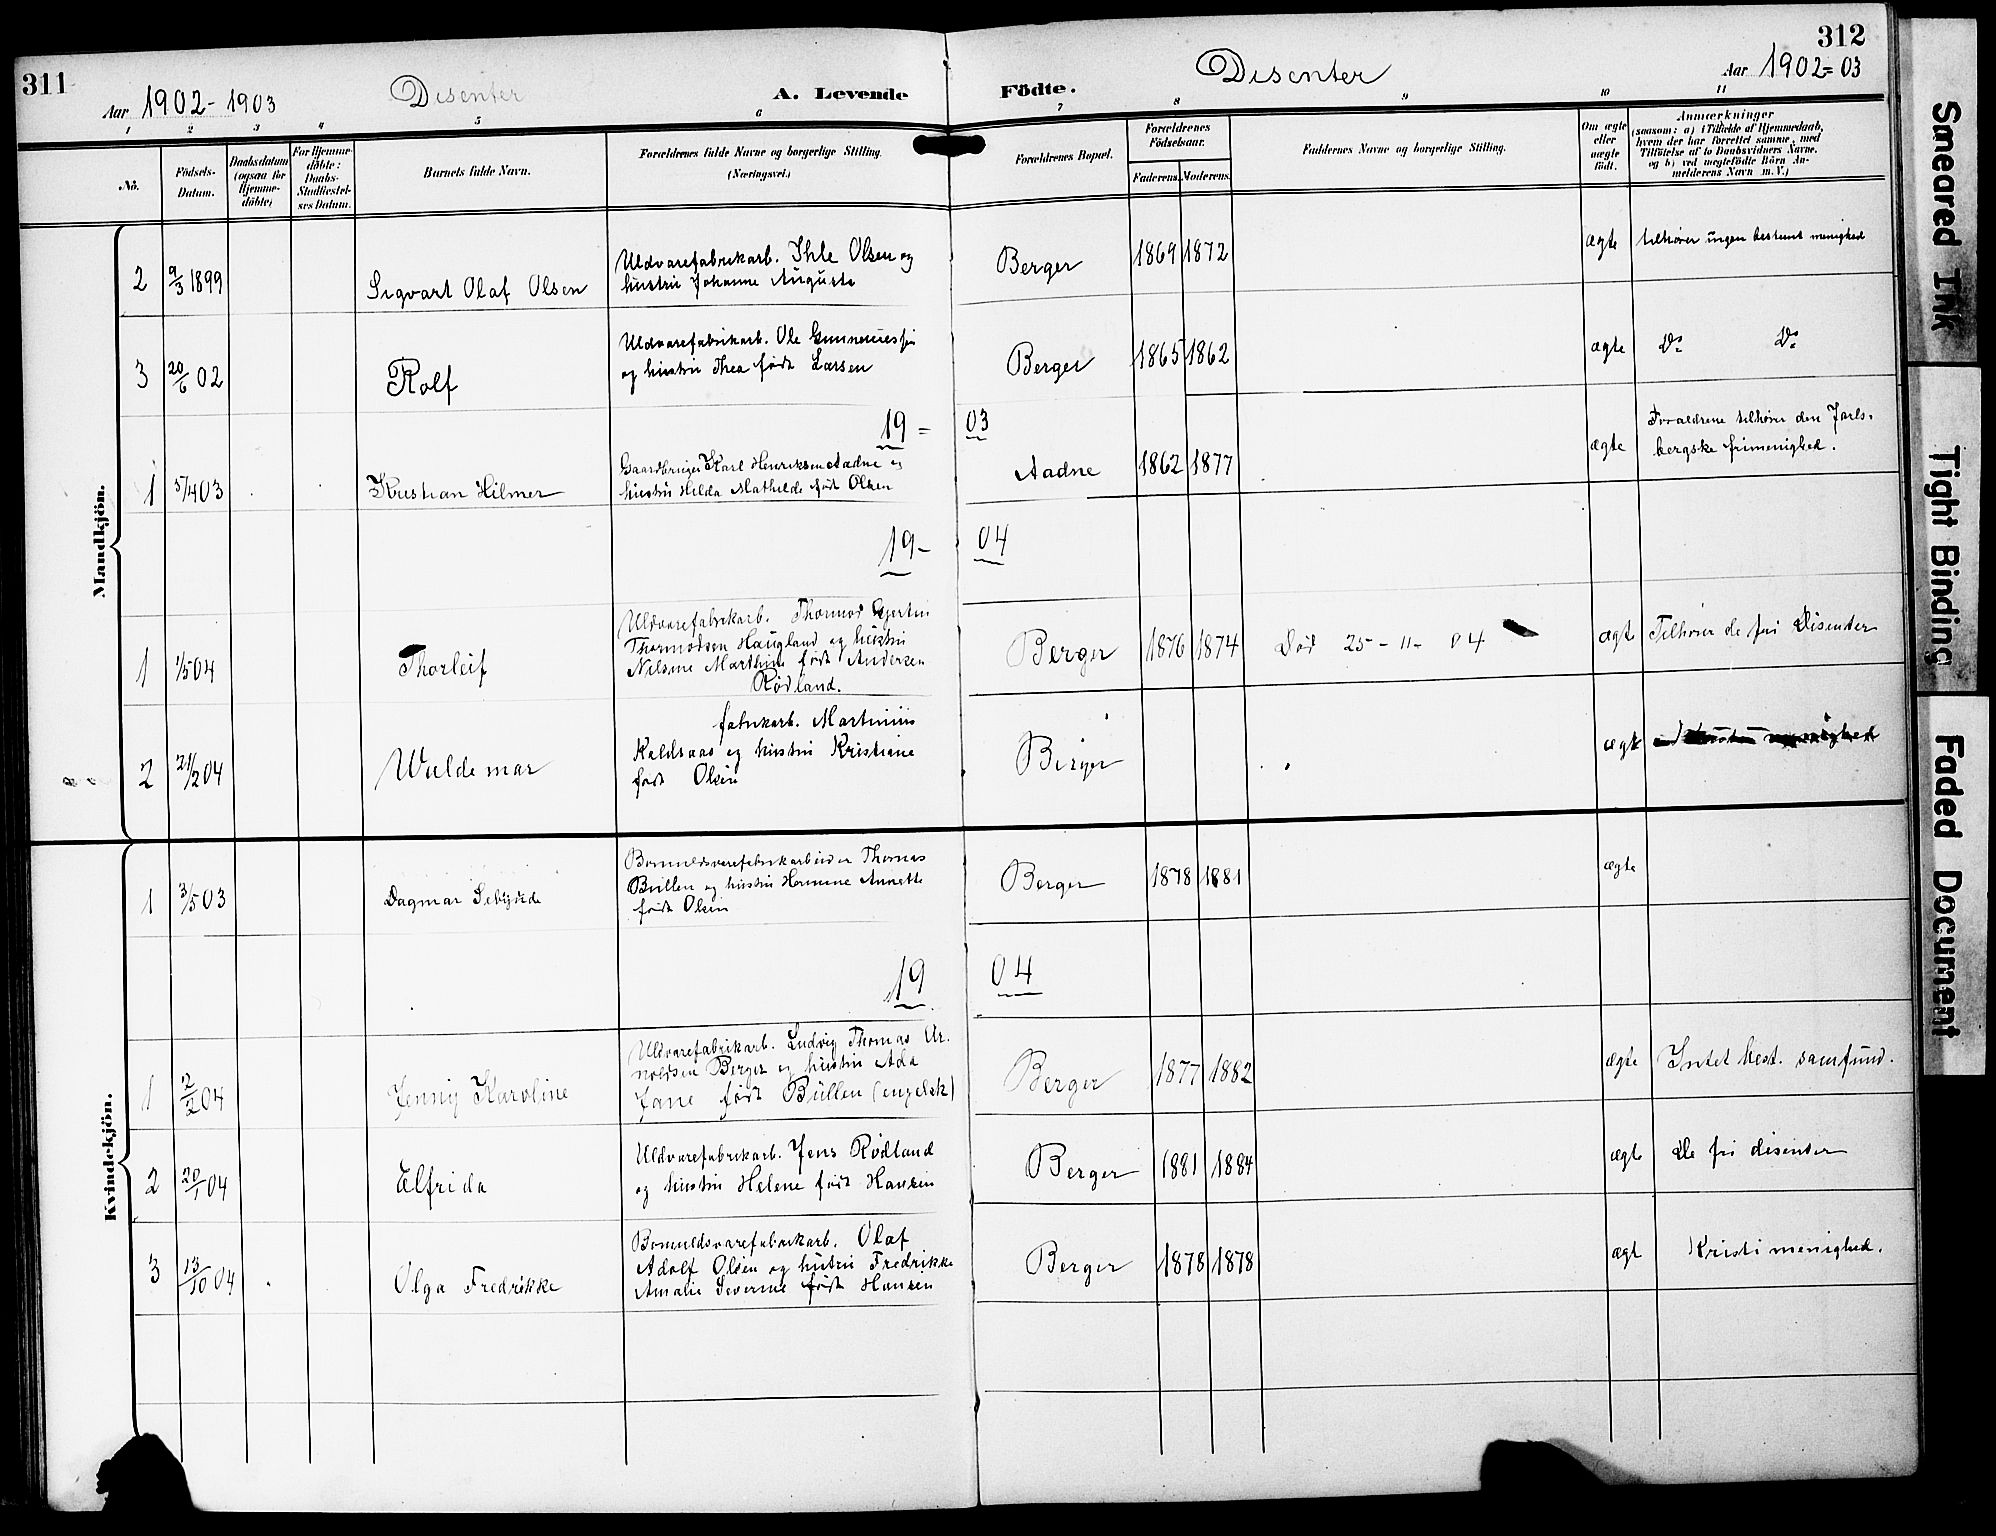 311
Aar 1902-1903
Disenter
A. Levende
Födte.
Disenter
312
Aar 1902=03
1 2 3 4 5 6 7 8 9 10 11
No.
Födsels-
Datum.
Daabsdatum
(ogsaa for
Hjemme-
döbte)
For Hjemme-
döbte:
Daabs-
Stadfæstel-
ses Datum.
Barnets fulde Navn.
Forældrenes fulde Navne og borgerlige Stilling.
(Næringsvei.)
Forældrenes Bopæl.
Forældrenes
Födselsaar.
Faderens. Moderens.
Faddernes Navne og borgerlige Stilling.
Om ægte
eller
uægte
födt.
Anmærkninger
(saasom: a) i Tilfælde af Hjemmedaab,
hvem der har forrettet samme, med
Tilföielse af to Daabsvidners Navne,
og b) ved uægtefödte Börn An-
melderens Navn m. V.)
Mandkjön.
2 9/3 1899 Sigvart Olaf Olsen
Uldvarefabrikarb. Ihle Olsen og
hustru Johanne Auguste
Berger 1869 1872 ægte tilhører ingen bestemt menighed
3 20/6 02 Rolf
Uldvarefabrikarb. Ole
og hustru Thea født Larsen
Berger 1865 1862 ægte Do Do
19 = 03
1 5/4 03 Kristian Hilmer
Gaardbruger Karl Henriksen Aadne og
hustru Hilda Mathilde født Olsen
Aadne 1862 1877 ægte
Forældrene tilhører den Jarls-
bergske frimenighed.
19- 04
1 1/5 04 Thorleif
Uldvarefabrikarb. Thormod Gjertin
Thormodsen Haugland og hustru
Nilsine Marthine født Andersen
Rødland.
Berger 1876 1874 Død 25-11- 04 ægte Tilhører de fri Disenter
2 21/2 04 Waldemar
fabrikarb. Martinius
Kaldsaas og hustru Kristiane
født Olsen
Berger ægte
Kvindekjön.
1 3/5 03 Dagmar
Bomuldsvarefabrikarbeider Thomas
Büllen og hustru Hermine Annette
født Olsen
Berger 1878 1881 ægte
19 04
1 2/2 04 Jenny Karoline
Uldvarefabrikarb. Ludvig Thomas Ar-
noldsen Berger og hustru Ada
Jane født Büllen (engelsk)
Berger 1877 1882 ægte Intet best. samfund.
2 20/1 04 Elfrida
Uldvarefabrikarb. Jens Rødland
og hustru Helene født Hansen
Berger 1881 1884 ægte De fri disenter
3 13/10 04 Olga Fredrikke
Bomuldsvarefabrikarb. Olaf
Adolf Olsen og hustru Fredrikke
Amalie Severine født Hansen
Berger 1878 1878 ægt Kristi menighed.
Smeared Ink
Tight Binding
Faded Document